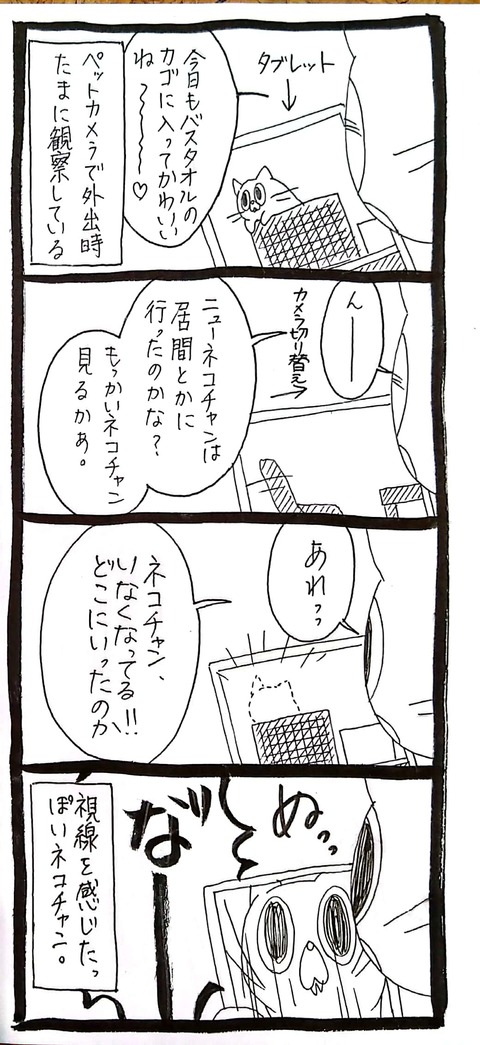 タブレット
今日もバスタオルの
カゴに入ってかわいい
ね〜〜〜〜♡
ペットカメラで外出時
たまに観察している
んー
カメラ切り替え
ニューネコチャンは
居間とかに
行ったのかな?
もっかいネコチャン
見るかぁ。
あれっっ
ネコチャン、
いなくなってる!!
どこにいったのか
ぬっっ
なー
視線を感じたっ
ぽいネコチャン。